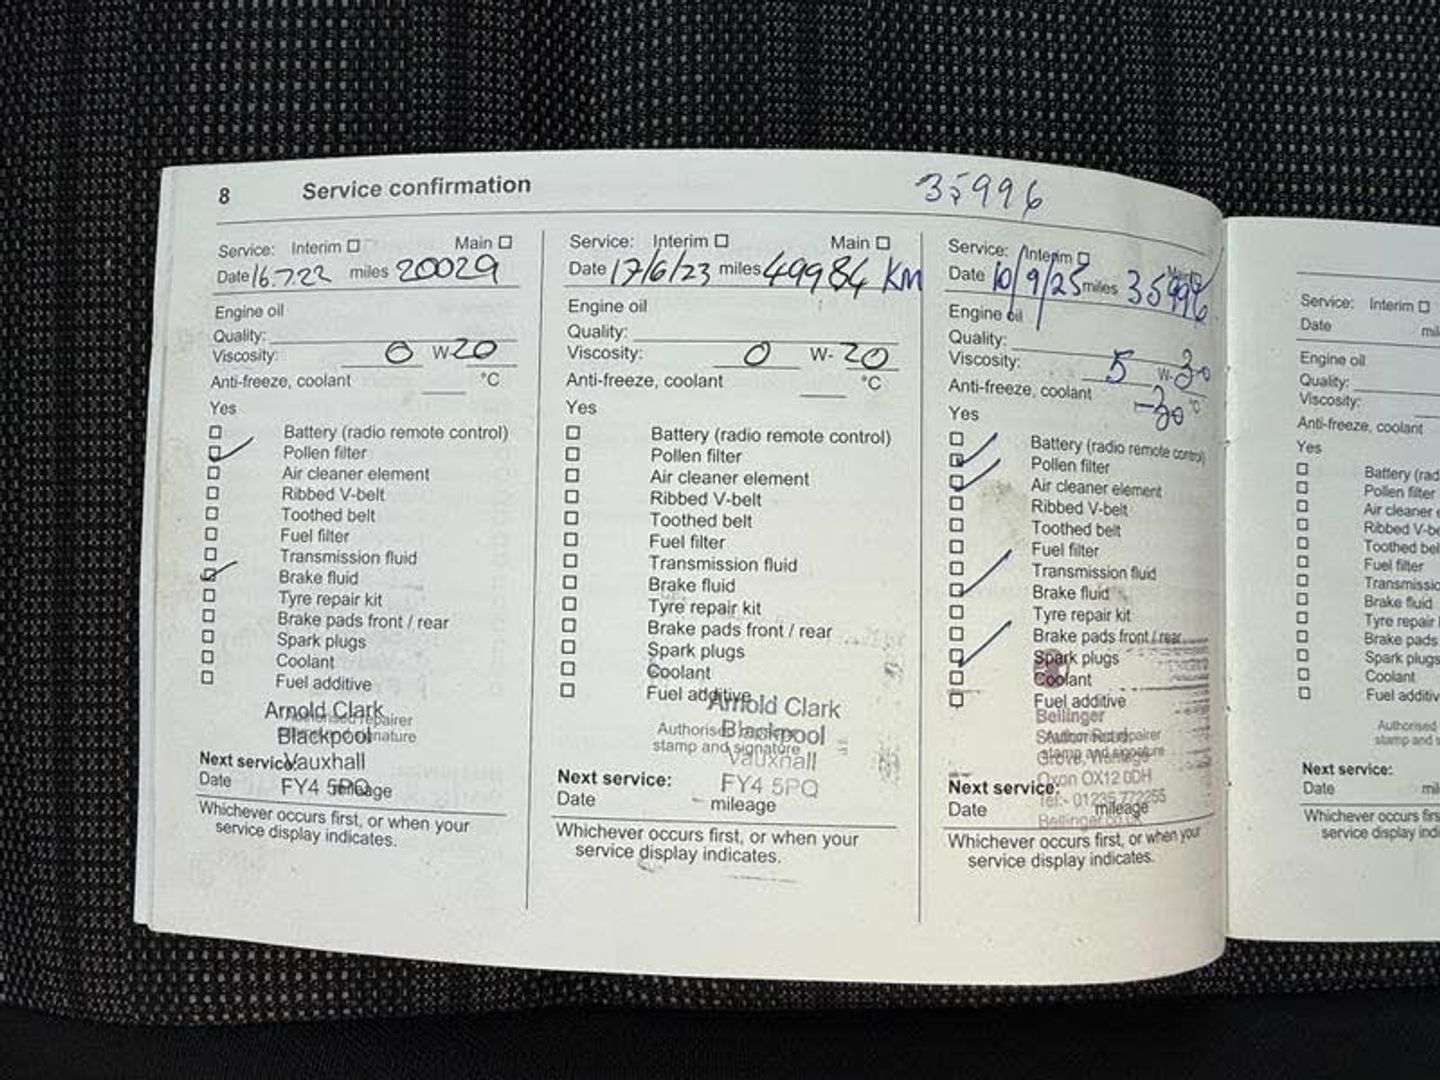 8 Service confirmation
35996
Service: Interim Main
Date 16.7.22 miles 20029
Engine oil
Quality:
Viscosity: 0 W-20
Anti-freeze, coolant °C
Yes
Battery (radio remote control)
Pollen filter
Air cleaner element
Ribbed V-belt
Toothed belt
Fuel filter
Transmission fluid
Brake fluid
Tyre repair kit
Brake pads front / rear
Spark plugs
Coolant
Fuel additive
Arnold Clark
Authorised repairer
Blackpool
stamp and signature
Vauxhall
Next service:
FY4 5PQ
Date mileage
Whichever occurs first, or when your
service display indicates.
Service: Interim Main
Date 17/6/23 miles 49984 Km
Engine oil
Quality:
Viscosity: 0 W- 20
Anti-freeze, coolant °C
Yes
Battery (radio remote control)
Pollen filter
Air cleaner element
Ribbed V-belt
Toothed belt
Fuel filter
Transmission fluid
Brake fluid
Tyre repair kit
Brake pads front / rear
Spark plugs
Coolant
Fuel additive
Arnold Clark
Authorised repairer
Blackpool
stamp and signature
Vauxhall
Next service:
FY4 5PQ
Date mileage
Whichever occurs first, or when your
service display indicates.
Service: Interim Main
Date 10/9/25 miles 35996
Engine oil
Quality:
Viscosity: 5 W- 30
Anti-freeze, coolant -30 °C
Yes
Battery (radio remote control)
Pollen filter
Air cleaner element
Ribbed V-belt
Toothed belt
Fuel filter
Transmission fluid
Brake fluid
Tyre repair kit
Brake pads front / rear
Spark plugs
Coolant
Fuel additive
Bellinger
Authorised repairer
stamp and signature
Grove, Wantage
Oxon OX12 0DH
Next service:
Tel:- 01235 772255
Date mileage
Whichever occurs first, or when your
service display indicates.
Service: Interim
Date
Engine oil
Quality:
Viscosity:
Anti-freeze, coolant
Yes
Battery
Pollen filter
Air cleaner
Ribbed
Toothed
Fuel filter
Transmission
Brake fluid
Tyre repair
Brake pads
Spark plugs
Coolant
Fuel
Authorised
stamp and
Next service:
Date
Whichever occurs
service display